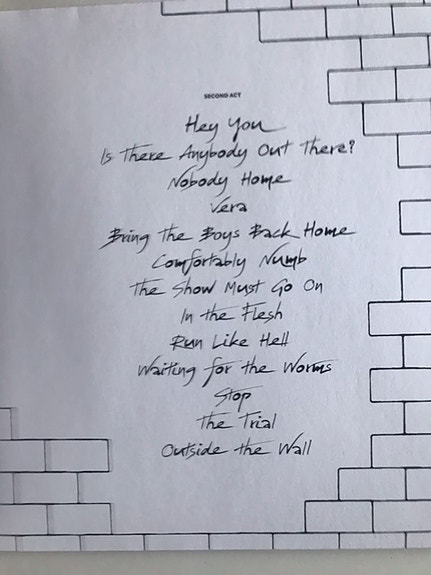 SECOND ACT
Hey You
Is There Anybody Out There?
Nobody Home
Vera
Bring The Boys Back Home
Comfortably Numb
The Show Must Go On
In the Flesh
Run Like Hell
Waiting for the Worms
Stop
The Trial
Outside the Wall